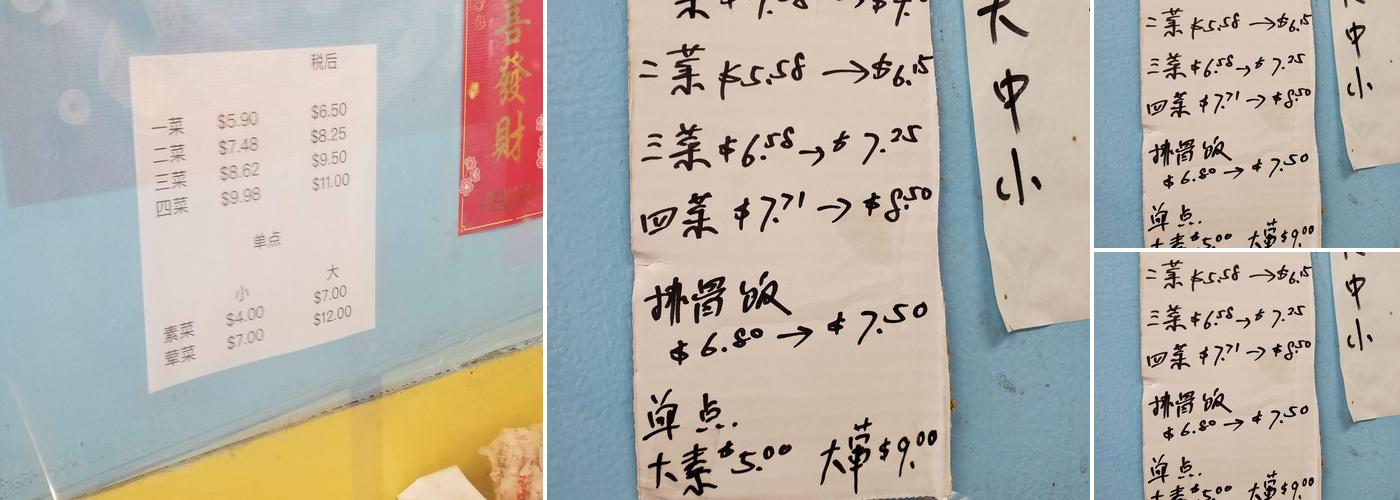 税后
一菜 $5.90 $6.50
二菜 $7.48 $8.25
三菜 $8.62 $9.50
四菜 $9.98 $11.00
单点
小 大
素菜 $4.00 $7.00
荤菜 $7.00 $12.00
喜發財
二菜 $5.58 → $6.15
三菜 $6.58 → $7.25
四菜 $7.71 → $8.50
排骨饭
$6.80 → $7.50
单点.
大素 $5.00 大荤 $9.00
大
中
小
二菜 $5.58 → $6.15
三菜 $6.58 → $7.25
四菜 $7.71 → $8.50
排骨饭
$6.80 → $7.50
单点.
大素 $5.00 大荤 $9.00
中
小
二菜 $5.58 → $6.15
三菜 $6.58 → $7.25
四菜 $7.71 → $8.50
排骨饭
$6.80 → $7.50
单点.
大素 $5.00 大荤 $9.00
中
小